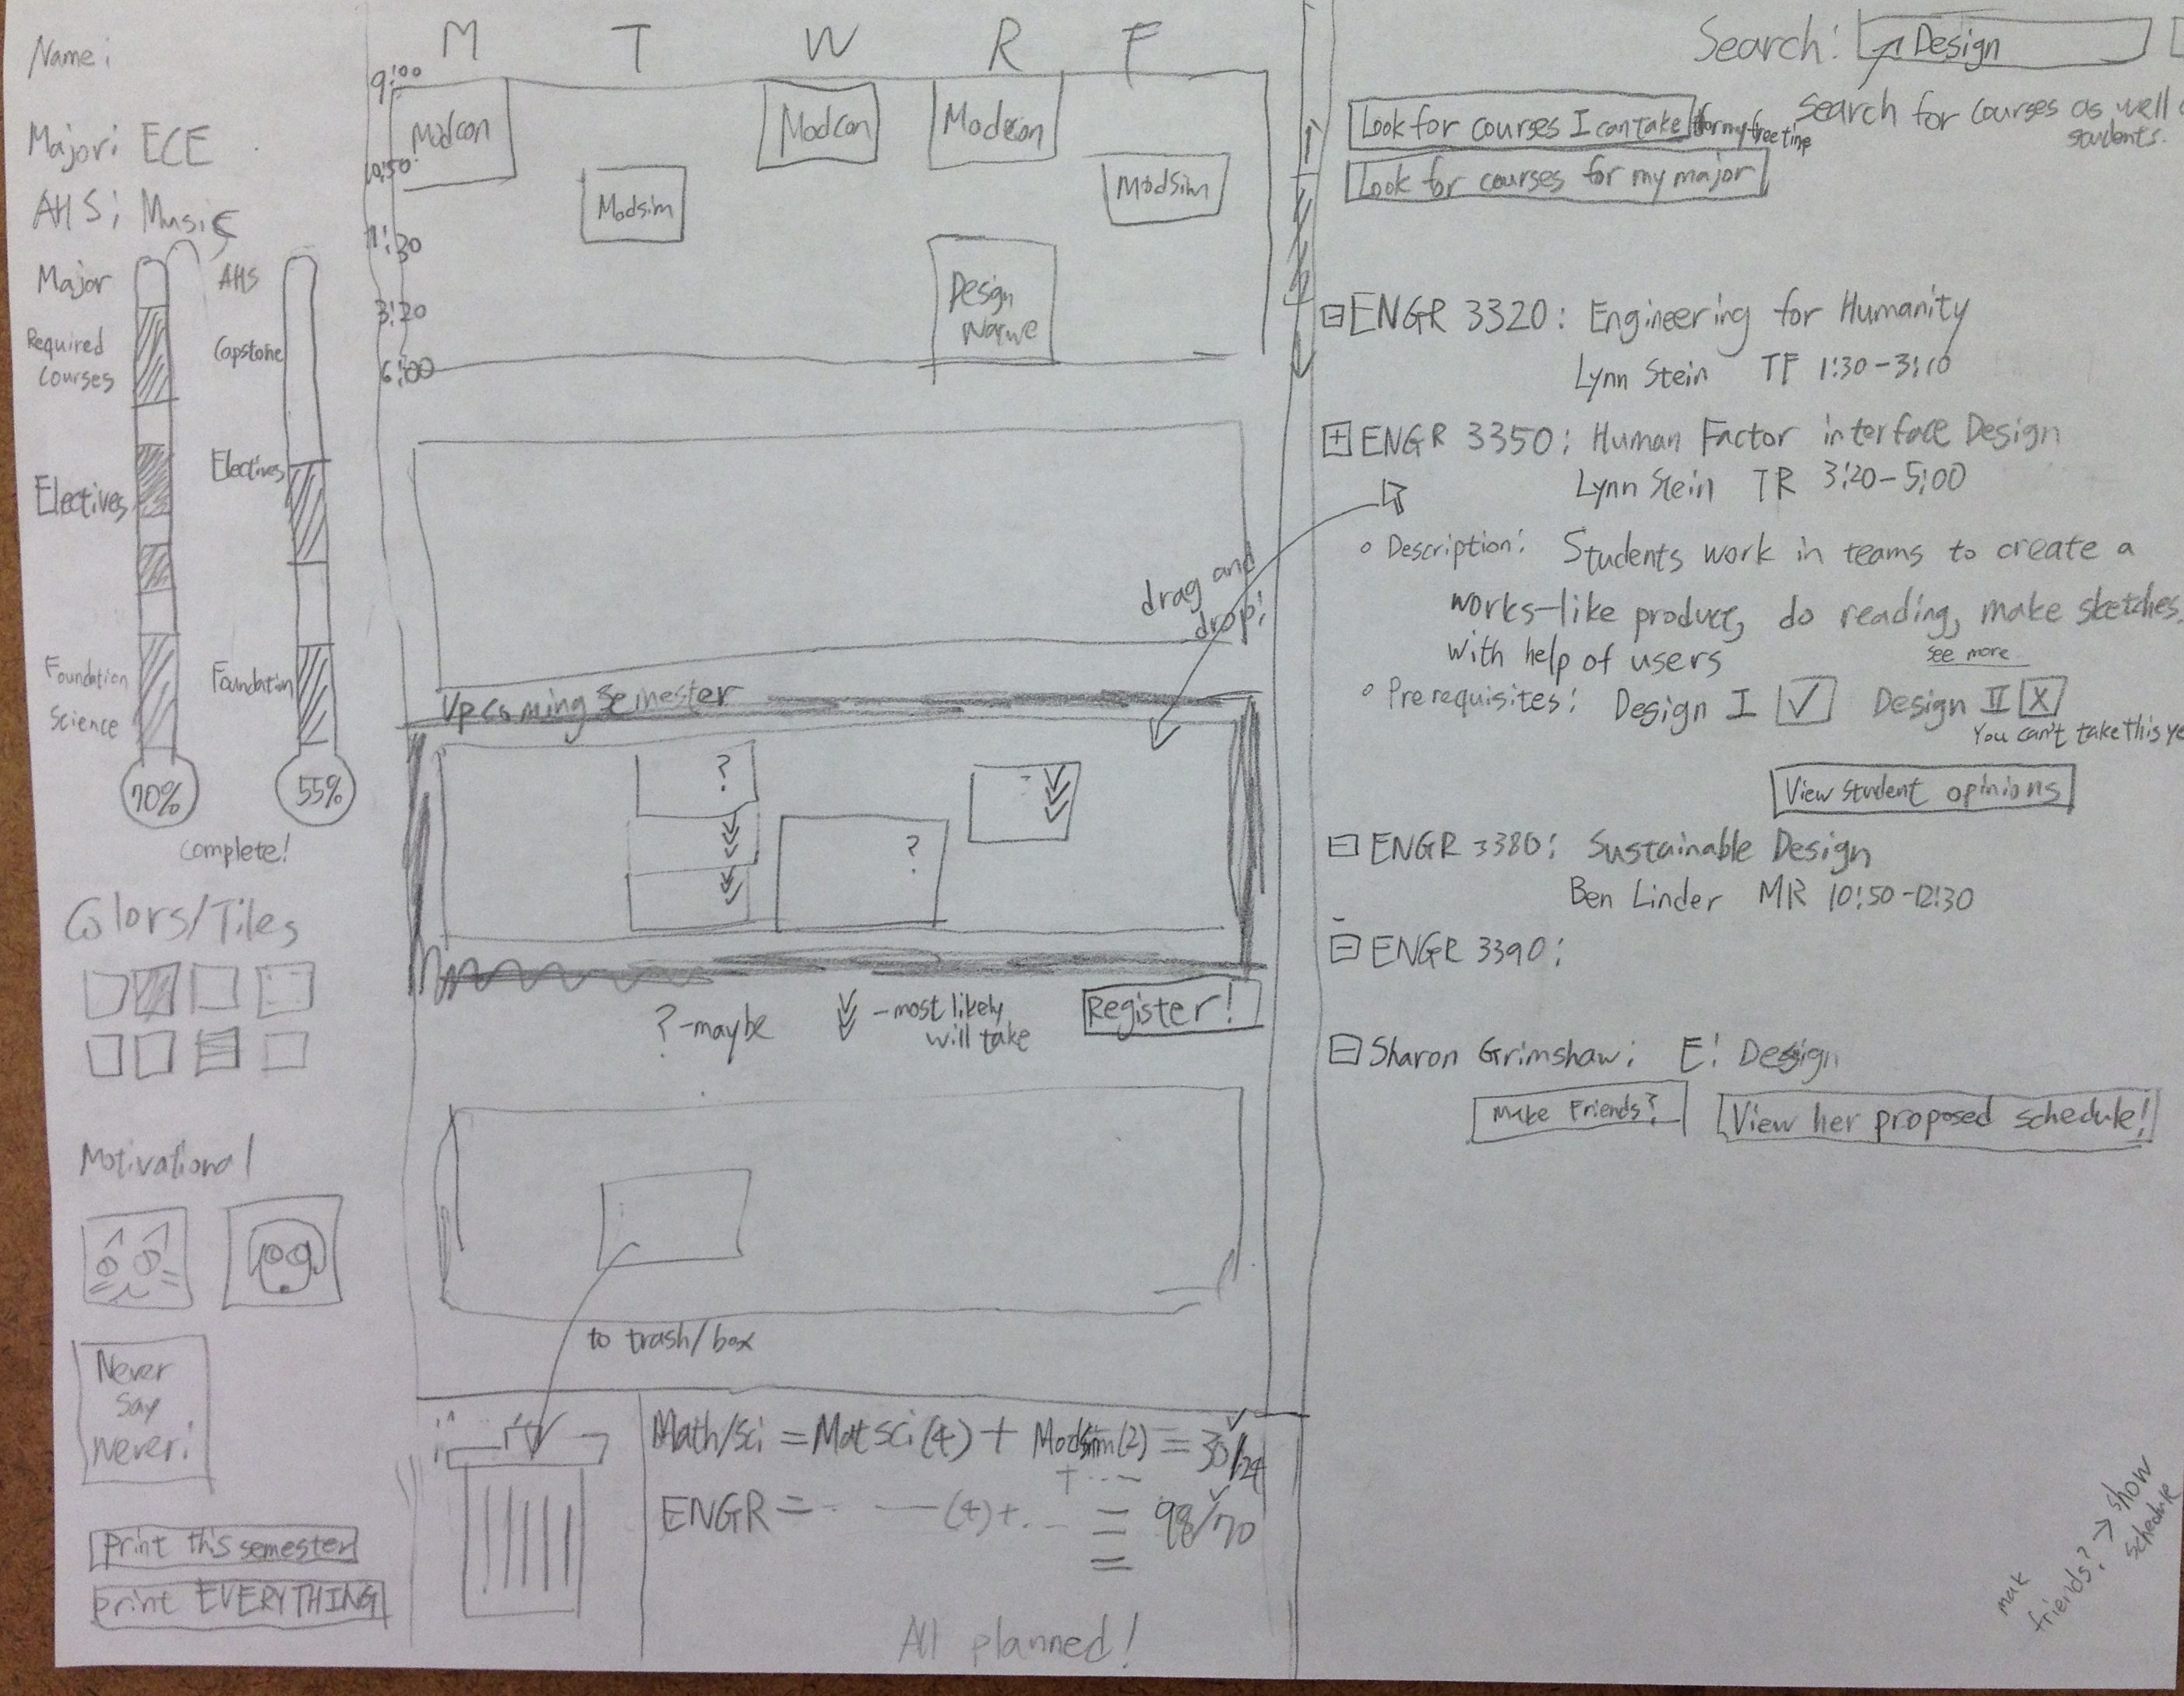 Name:
Major: ECE
AHS: Music
Major
AHS
Required
Courses
Capstone
Electives
Electives
Foundation
Science
Foundation
70%
55%
Complete!
Colors/Tiles
Motivational
Never
say
never!
Print this semester
print EVERYTHING
M T W R F
9:00
10:50
11:30
3:20
6:00
Modcon
Modcon
Modcon
Modsim
Modsim
Design
drag and
drop!
Upcoming Semester
?
?
?-maybe
-most likely
will take
Register!
to trash/box
Math/Sci = Matsci(4) + Modsim(2) = 30/24
+ ...
ENGR = - — (4)+... = 98/70
All planned!
Search: Design
Search for courses as well
students.
Look for courses I can take for my free time
Look for courses for my major
ENGR 3320: Engineering for Humanity
Lynn Stein TF 1:30-3:10
ENGR 3350: Human Factor interface Design
Lynn Stein TR 3:20-5:00
Description: Students work in teams to create a
works-like product, do reading, make sketches,
with help of users
see more
Prerequisites: Design I ✓ Design II X
You can't take this
View student opinions
ENGR 3380: Sustainable Design
Ben Linder MR 10:50-12:30
ENGR 3390:
Sharon Grimshaw: E: Design
Make Friends?
View her proposed schedule!
mak
friends? -> show
schedule